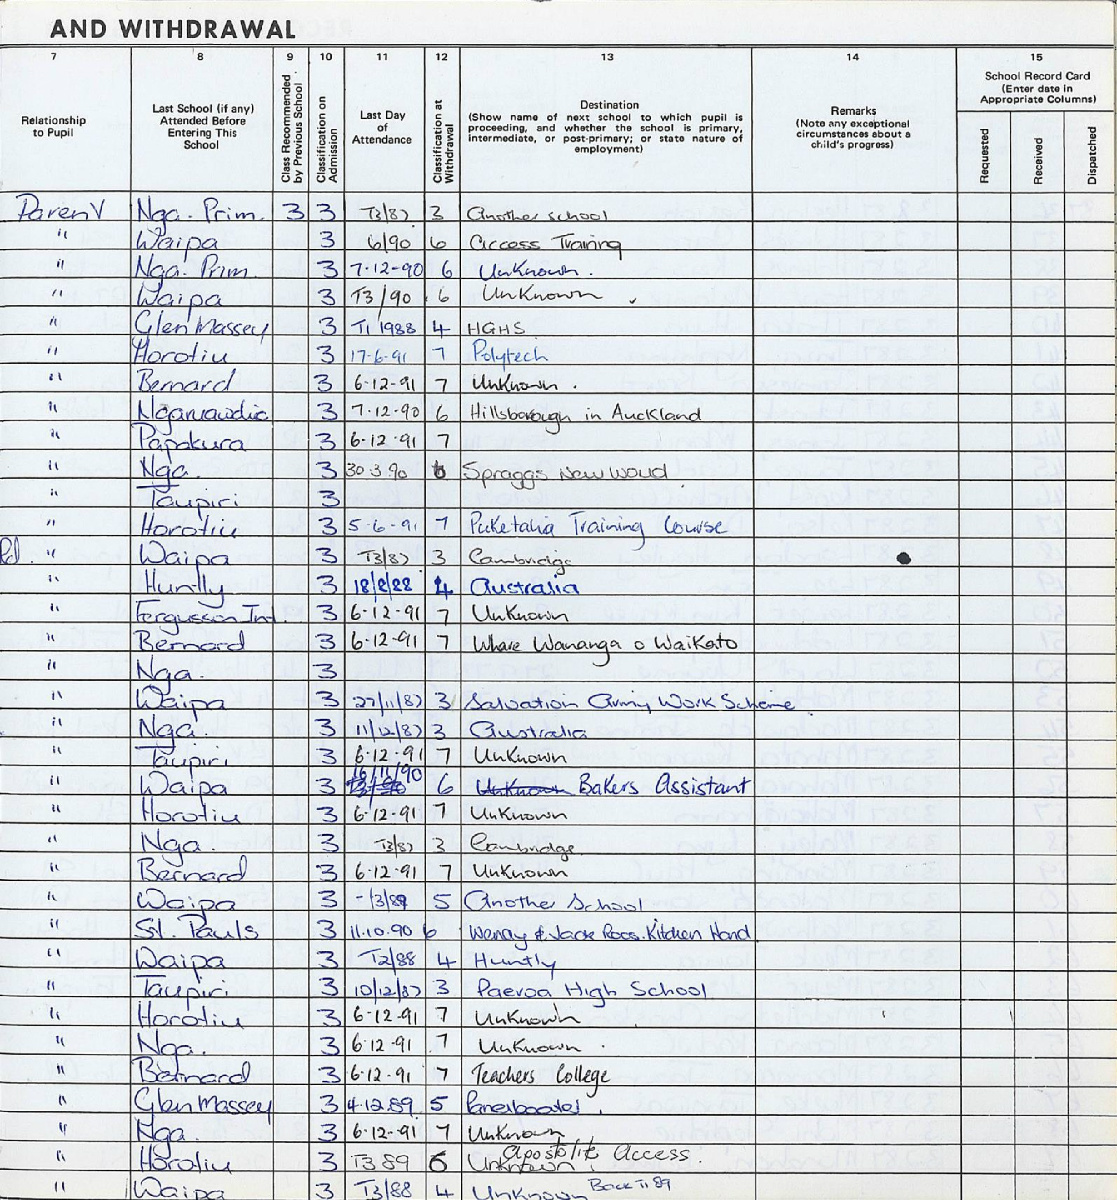 AND WITHDRAWAL
7 8 9 10 11 12 13 14 15
Relationship to Pupil
Last School (if any) Attended Before Entering This School
Class Recommended by Previous School
Classification on Admission
Last Day of Attendance
Classification at Withdrawal
Destination
(Show name of next school to which pupil is proceeding, and whether the school is primary, intermediate, or post-primary; or state nature of employment)
Remarks
(Note any exceptional circumstances about a child's progress)
School Record Card
(Enter date in Appropriate Columns)
Requested
Received
Dispatched
Parent Nga. Prim. 3 3 T3/87 3 Another school
" Waipa 3 6/90 6 Access Training
" Nga. Prim. 3 7-12-90 6 Unknown.
" Waipa 3 T3/90 6 Unknown
" Glen Massey 3 T1 1988 4 HGHS
" Horotiu 3 17-6-91 7 Polytech
" Bernard 3 6-12-91 7 Unknown.
" 3 7-12-90 6 Hillsborough in Auckland
" Papakura 3 6-12-91 7
" Nga. 3 30 3 90 6 Spraggs New Woud
" Taupiri 3
" Horotiu 3 5-6-91 7 Training Course
Rd. " Waipa 3 T3/87 3 Cambridge
" Huntly 3 18/8/88 4 Australia
" Fergusson Int. 3 6-12-91 7 Unknown
" Bernard 3 6-12-91 7 Whare Wananga o Waikato
" Nga. 3
" Waipa 3 27/11/87 3 Salvation Army Work Scheme
" Nga. 3 11/12/87 3 Australia
" Taupiri 3 6-12-91 7 Unknown
16/11/90
" Waipa 3 T3/90 6 Unknown Bakers Assistant
" Horotiu 3 6-12-91 7 Unknown
" Nga. 3 T3/87 3 Cambridge
" Bernard 3 6-12-91 7 Unknown
" Waipa 3 -/3/89 5 Another School
" St. Pauls 3 11.10.90 6 Wendy & Jack Roos. Kitchen Hand
" Waipa 3 T2/88 4 Huntly
" Taupiri 3 10/12/87 3 Paeroa High School
" Horotiu 3 6-12-91 7 Unknown
" Nga. 3 6-12-91 7 Unknown.
" Bernard 3 6-12-91 7 Teachers College
" Glen Massey 3 4.12.89 5
" Nga. 3 6-12-91 7 Unknown
Apostolic Access.
" Horotiu 3 T3 89 6 Unknown.
" Waipa 3 T3/88 4 Unknown Back T1 89